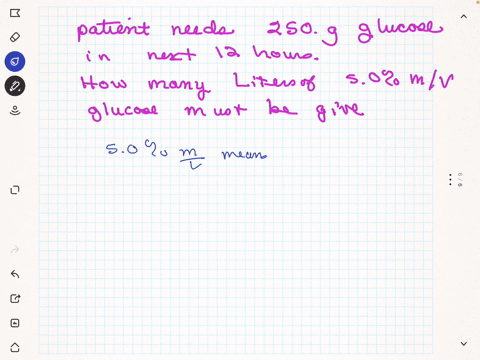 patient needs 250. g glucose
in next 12 hours.
How many Liters of 5.0% m/v
glucose must be give
5.0% m/v mean